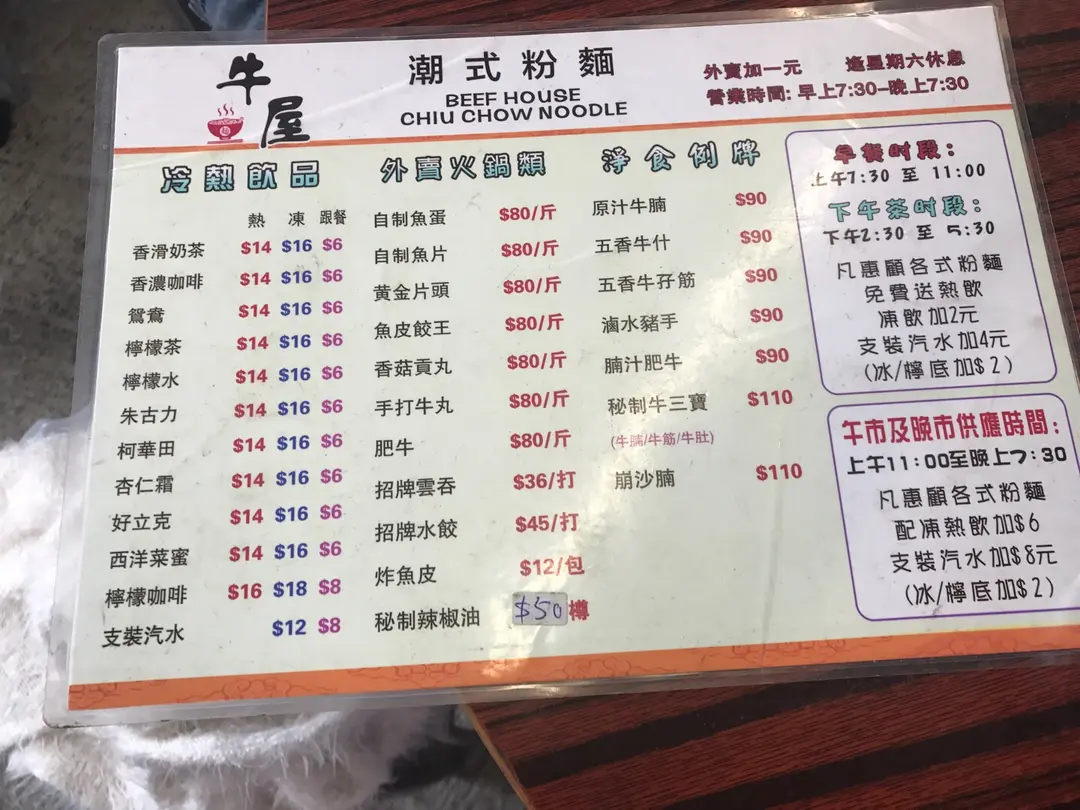 牛屋
潮式粉麵
BEEF HOUSE
CHIU CHOW NOODLE
外賣加一元 逢星期六休息
營業時間: 早上7:30-晚上7:30
冷熱飲品
熱 凍 跟餐
香滑奶茶 $14 $16 $6
香濃咖啡 $14 $16 $6
鴛鴦 $14 $16 $6
檸檬茶 $14 $16 $6
檸檬水 $14 $16 $6
朱古力 $14 $16 $6
柯華田 $14 $16 $6
杏仁霜 $14 $16 $6
好立克 $14 $16 $6
西洋菜蜜 $14 $16 $6
檸檬咖啡 $16 $18 $8
支裝汽水 $12 $8
外賣火鍋類
自制魚蛋 $80/斤
自制魚片 $80/斤
黄金片頭 $80/斤
魚皮餃王 $80/斤
香菇貢丸 $80/斤
手打牛丸 $80/斤
肥牛 $80/斤
招牌雲吞 $36/打
招牌水餃 $45/打
炸魚皮 $12/包
秘制辣椒油 $50 樽
淨食例牌
原汁牛腩 $90
五香牛什 $90
五香牛孖筋 $90
滷水豬手 $90
腩汁肥牛 $90
秘制牛三寶 $110
(牛腩/牛筋/牛肚)
崩沙腩 $110
早餐时段:
上午7:30 至 11:00
下午茶时段:
下午2:30 至 5:30
凡惠顧各式粉麵
免費送熱飲
凍飲加2元
支裝汽水加4元
(冰/檸底加$2)
午市及晚市供應時間:
上午11:00至晚上7:30
凡惠顧各式粉麵
配凍熱飲加$6
支裝汽水加$8元
(冰/檸底加$2)